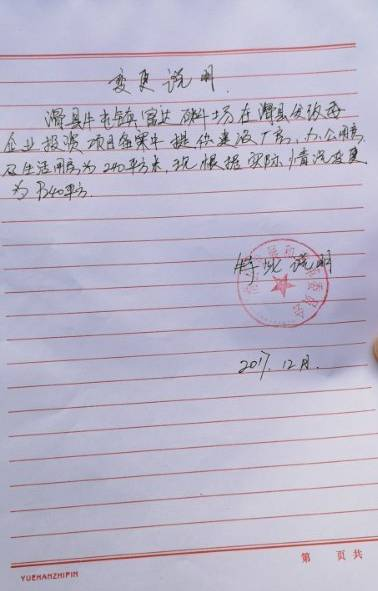 变更说明
滑县牛屯镇富达砖场在滑县发改委
企业投资项目备案中提供建设厂房,办公用房
及生活用房为240平方米,现根据实际情况变更
为1340平方.
特此说明
2017.12月.
第 页共
YUEHANZHIPIN